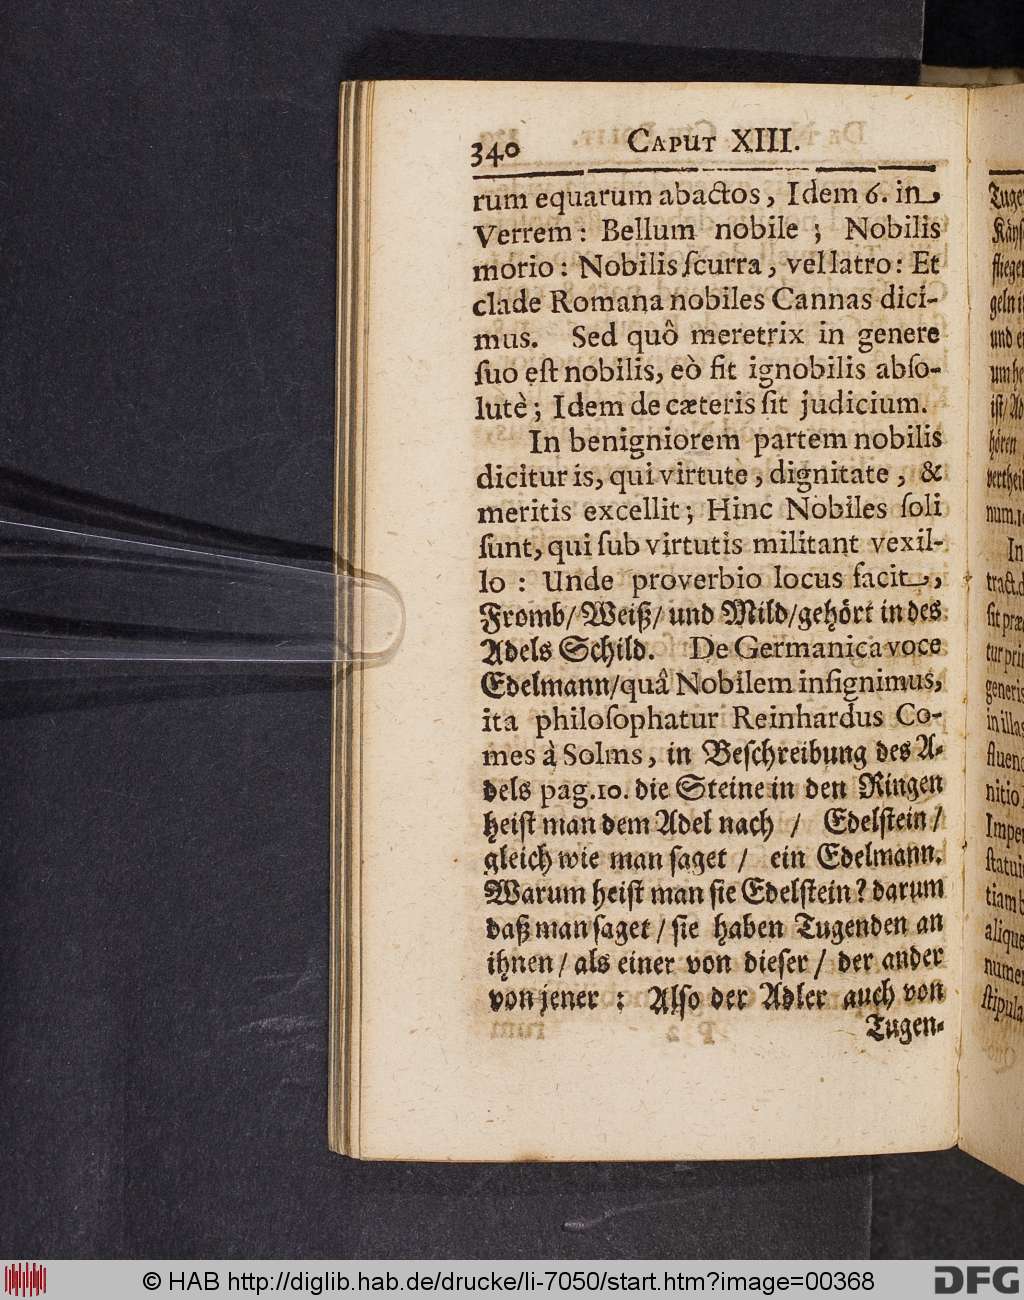 340 CAPUT XIII.
rum equarum abactos, Idem 6. in
Verrem: Bellum nobile; Nobilis
morio: Nobilis ſcurra, vel latro: Et
clade Romana nobiles Cannas dici-
mus. Sed quô meretrix in genere
ſuo eſt nobilis, eò ſit ignobilis abſo-
lutè; Idem de cæteris ſit judicium.
In benigniorem partem nobilis
dicitur is, qui virtute, dignitate, &
meritis excellit; Hinc Nobiles ſoli
ſunt, qui ſub virtutis militant vexil-
lo: Unde proverbio locus facit,
Fromb/ Weiß/ und Mild/ gehört in des
Adels Schild. De Germanica voce
Edelmann/ quâ Nobilem inſignimus,
ita philoſophatur Reinhardus Co-
mes à Solms, in Beſchreibung des A-
dels pag. 10. die Steine in den Ringen
heiſt man dem Adel nach / Edelſtein /
gleich wie man ſaget / ein Edelmann.
Warum heiſt man ſie Edelſtein? darum
daß man ſaget / ſie haben Tugenden an
ihnen / als einer von dieſer / der ander
von jener : Alſo der Adler auch von
Tugen-
Tuge
flieg
geln i
und e
um he
iſt/ Ad
hören
verthei
num. 1
In
tract. d
ſit præ
tur pri
generis
in illa
fluen
nitio
Impe
ſtatui
tiam
alique
numer
ſtipula
© HAB http://diglib.hab.de/drucke/li-7050/start.htm?image=00368
DFG